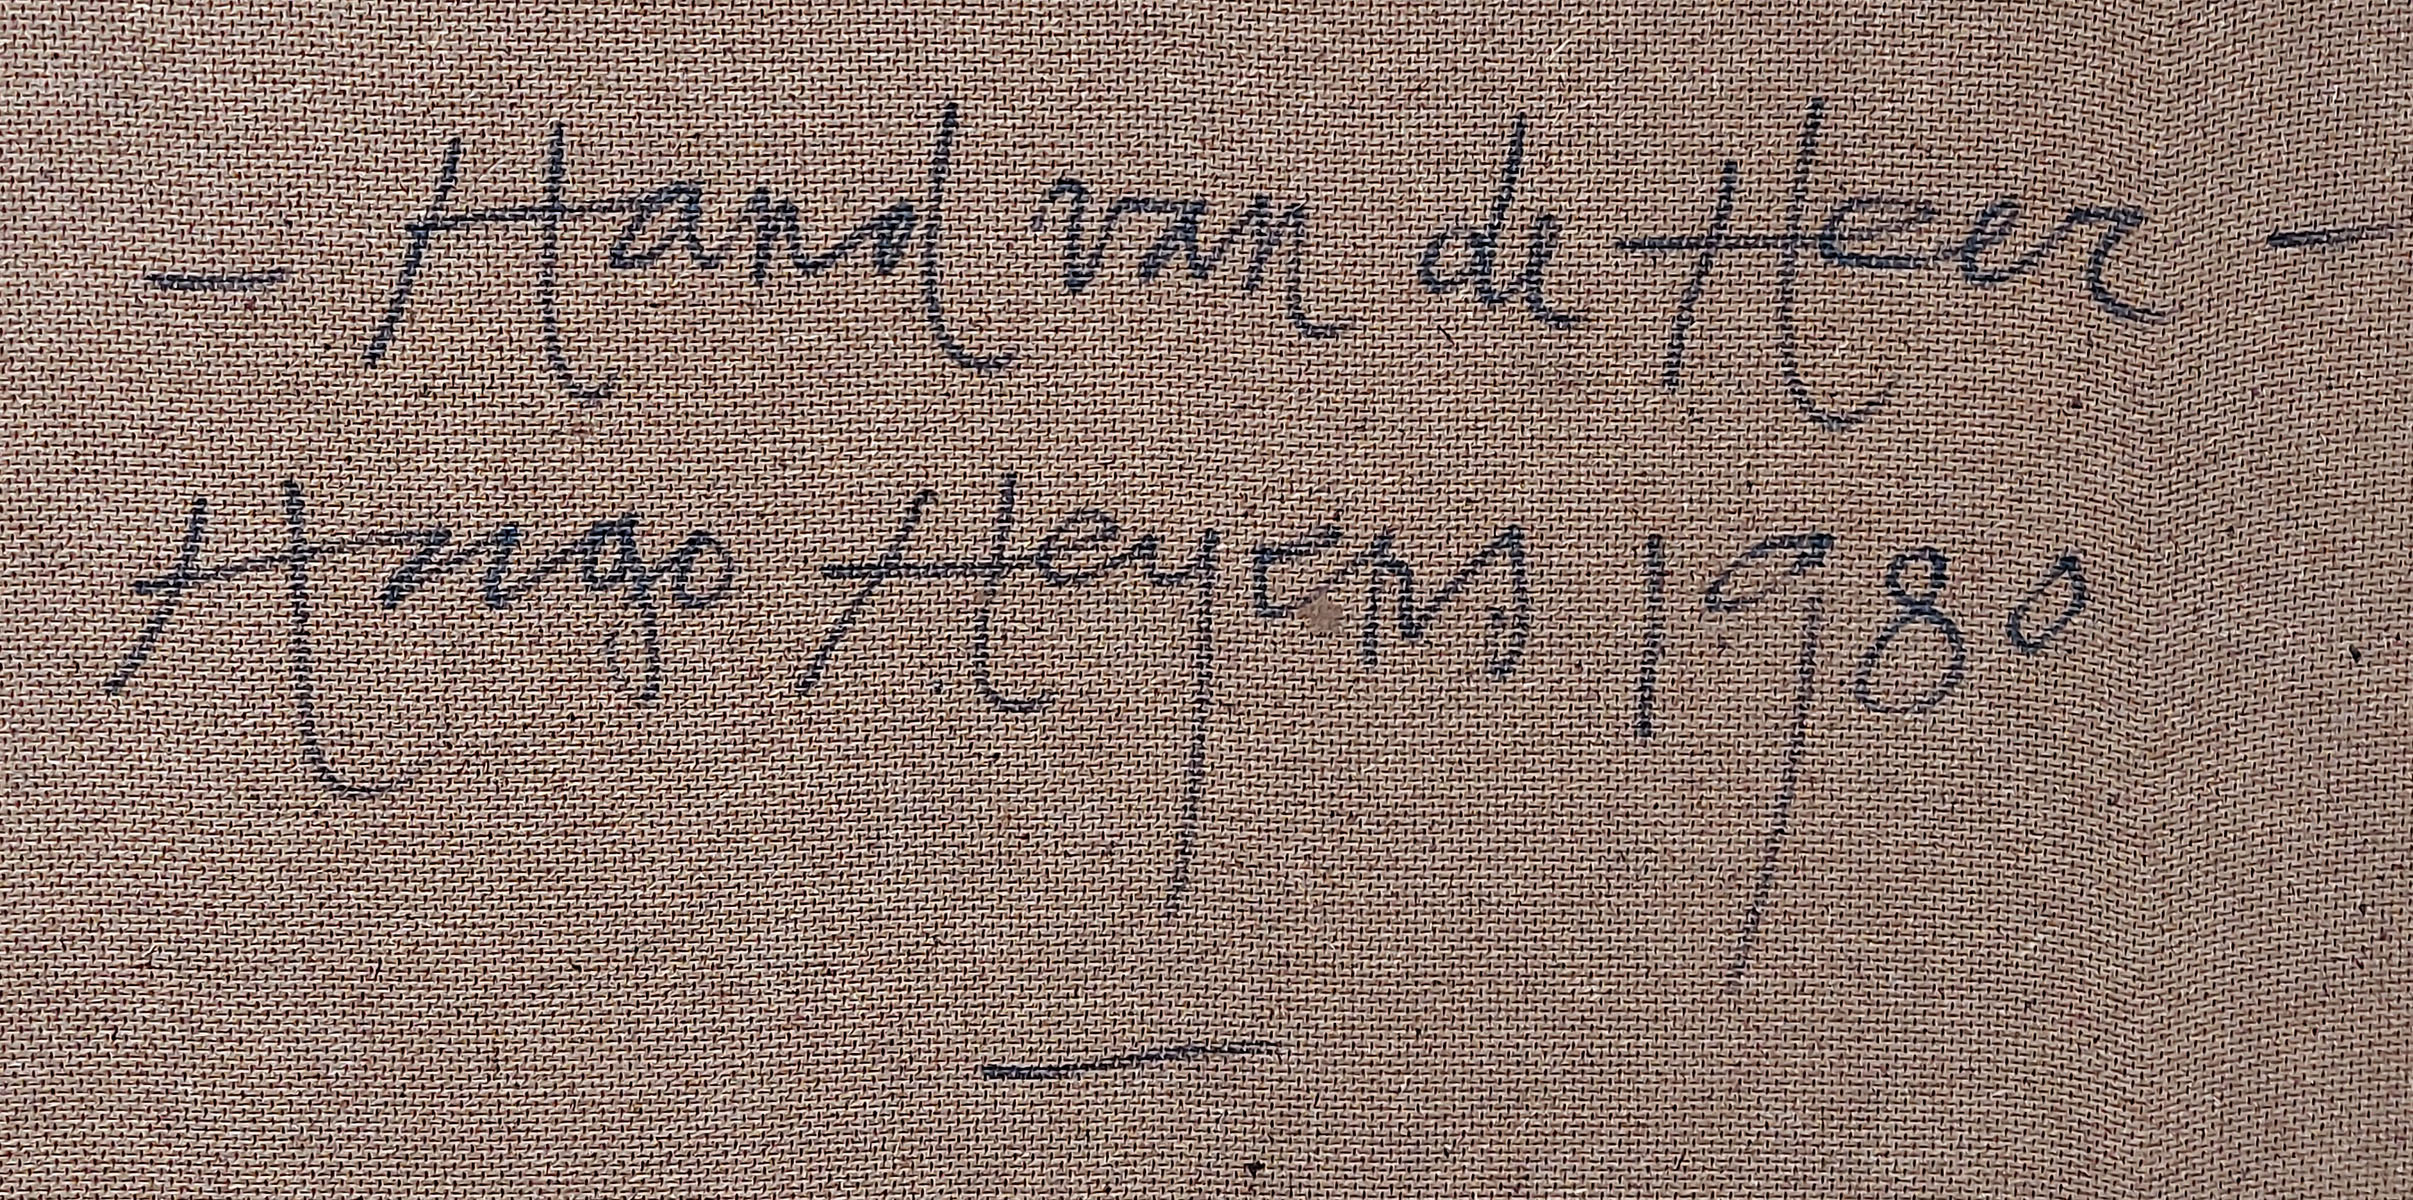 — Hand van de Heer —
Hugo Heyens 1980